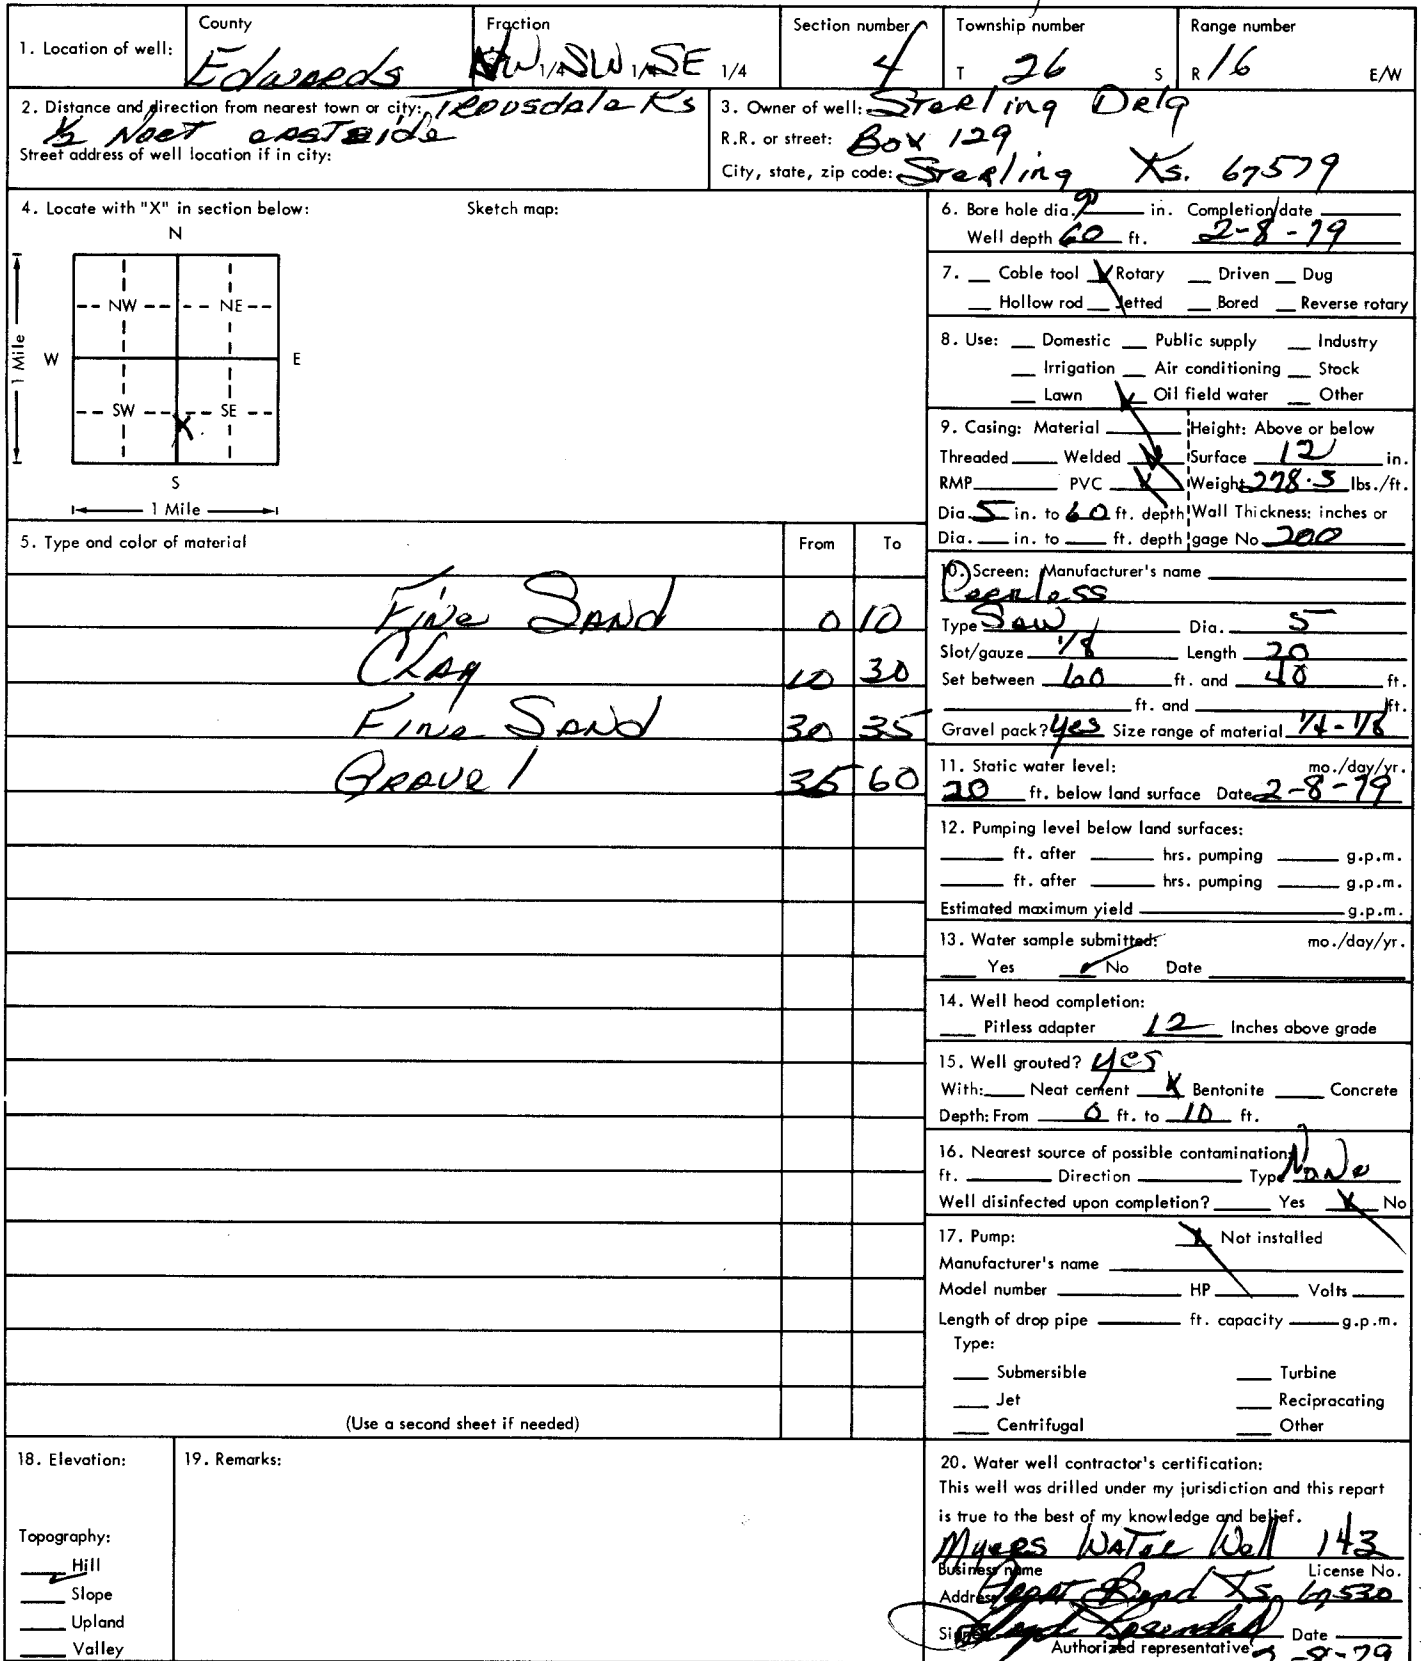 County Fraction Section number Township number Range number
1. Location of well: Edwards NW 1/4 SW 1/4 SE 1/4 4 T 26 S R 16 E/W
2. Distance and direction from nearest town or city: Trousdale Ks
1/2 Noet eastside
Street address of well location if in city:
3. Owner of well: Sterling Drlg
R.R. or street: Box 129
City, state, zip code: Sterling Ks. 67579
4. Locate with "X" in section below: Sketch map:
N
NW NE
W E
1 Mile
SW X SE
S
1 Mile
5. Type and color of material From To
Fine Sand 0 10
Clay 10 30
Fine Sand 30 35
Gravel 35 60
(Use a second sheet if needed)
6. Bore hole dia. 9 in. Completion date
Well depth 60 ft. 2-8-79
7. Cable tool X Rotary Driven Dug
Hollow rod Jetted Bored Reverse rotary
8. Use: Domestic Public supply Industry
Irrigation Air conditioning Stock
Lawn X Oil field water Other
9. Casing: Material Height: Above or below
Threaded Welded X Surface 12 in.
RMP PVC X Weight 278.5 lbs./ft.
Dia. 5 in. to 60 ft. depth Wall Thickness: inches or
Dia. in. to ft. depth gage No 200
10. Screen: Manufacturer's name
Peerless
Type Saw Dia. 5
Slot/gauze 1/8 Length 20
Set between 60 ft. and 40 ft.
ft. and ft.
Gravel pack? yes Size range of material 1/4 - 1/8
11. Static water level: mo./day/yr.
20 ft. below land surface Date 2-8-79
12. Pumping level below land surfaces:
ft. after hrs. pumping g.p.m.
ft. after hrs. pumping g.p.m.
Estimated maximum yield g.p.m.
13. Water sample submitted: mo./day/yr.
Yes ✓ No Date
14. Well head completion:
Pitless adapter 12 Inches above grade
15. Well grouted? yes
With: Neat cement X Bentonite Concrete
Depth: From 0 ft. to 10 ft.
16. Nearest source of possible contamination:
ft. Direction Type None
Well disinfected upon completion? Yes X No
17. Pump: X Not installed
Manufacturer's name
Model number HP Volts
Length of drop pipe ft. capacity g.p.m.
Type:
Submersible Turbine
Jet Reciprocating
Centrifugal Other
18. Elevation:
Topography:
✓ Hill
Slope
Upland
Valley
19. Remarks:
20. Water well contractor's certification:
This well was drilled under my jurisdiction and this report
is true to the best of my knowledge and belief.
Myers Water Well 143
Business name License No.
Address Great Bend Ks. 67530
Signed Date
Authorized representative 2-8-79